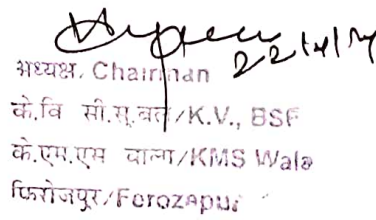 22/4/17
अध्यक्ष, Chairman
के.वि सी.सु.बल/K.V., BSF
के.एम.एस वाला/KMS Wala
फिरोजपुर/Ferozapur